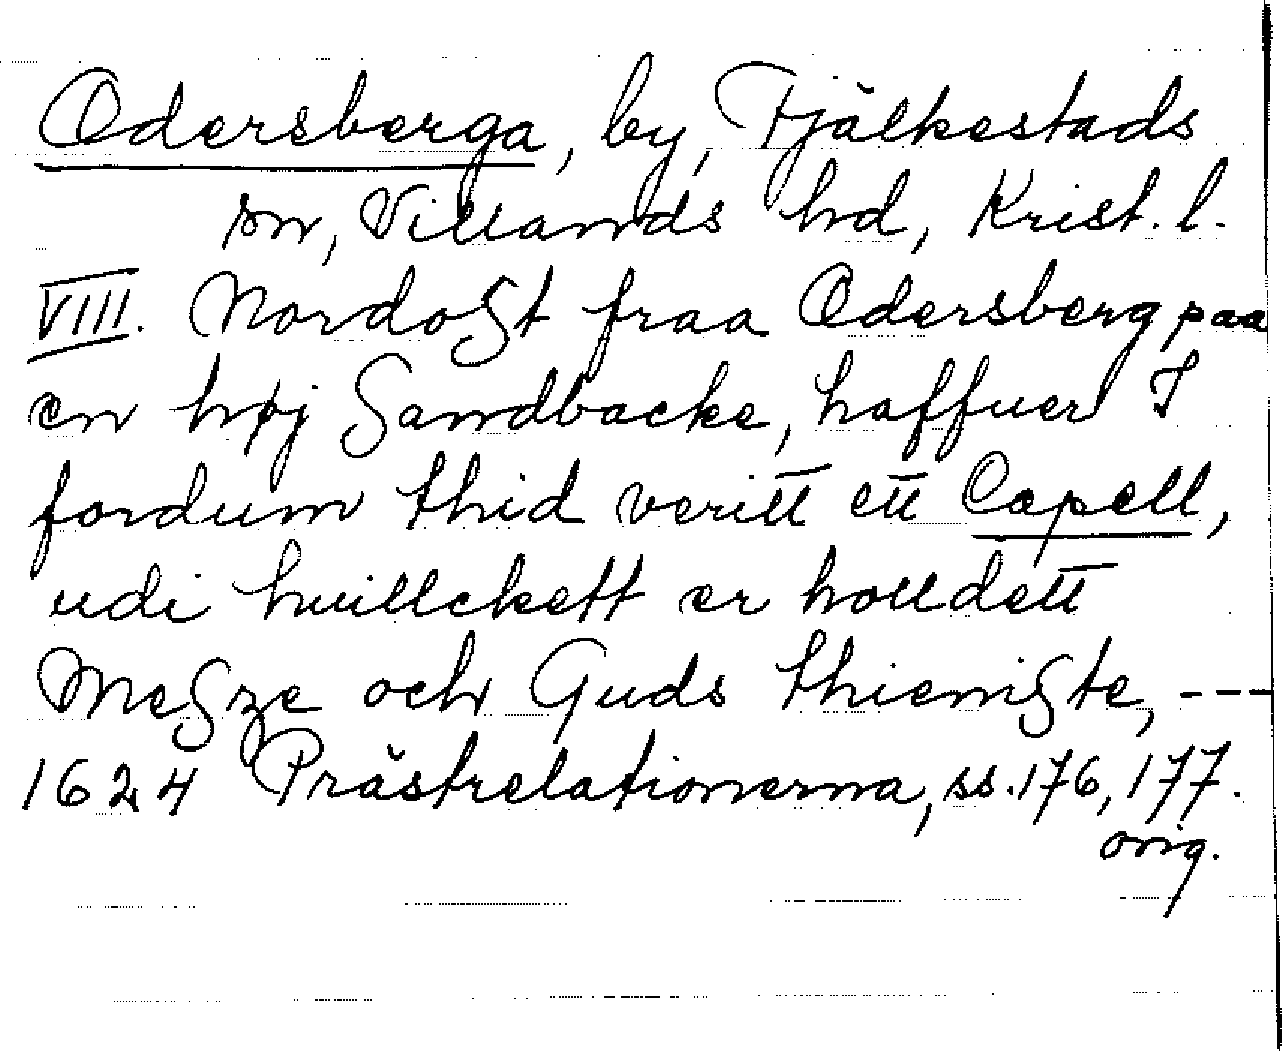 Odersberga, by, Fjälkestads
sn, Villands hd, Krist. l.
VIII. Nordost fraa Odersberg paa
en høj Sandbacke, haffuer I
fordum thid veritt ett Capell,
udi huillckett er holldett
Mesze och Guds thieniste, ---
1624 Prästrelationerna, ss. 176, 177.
orig.